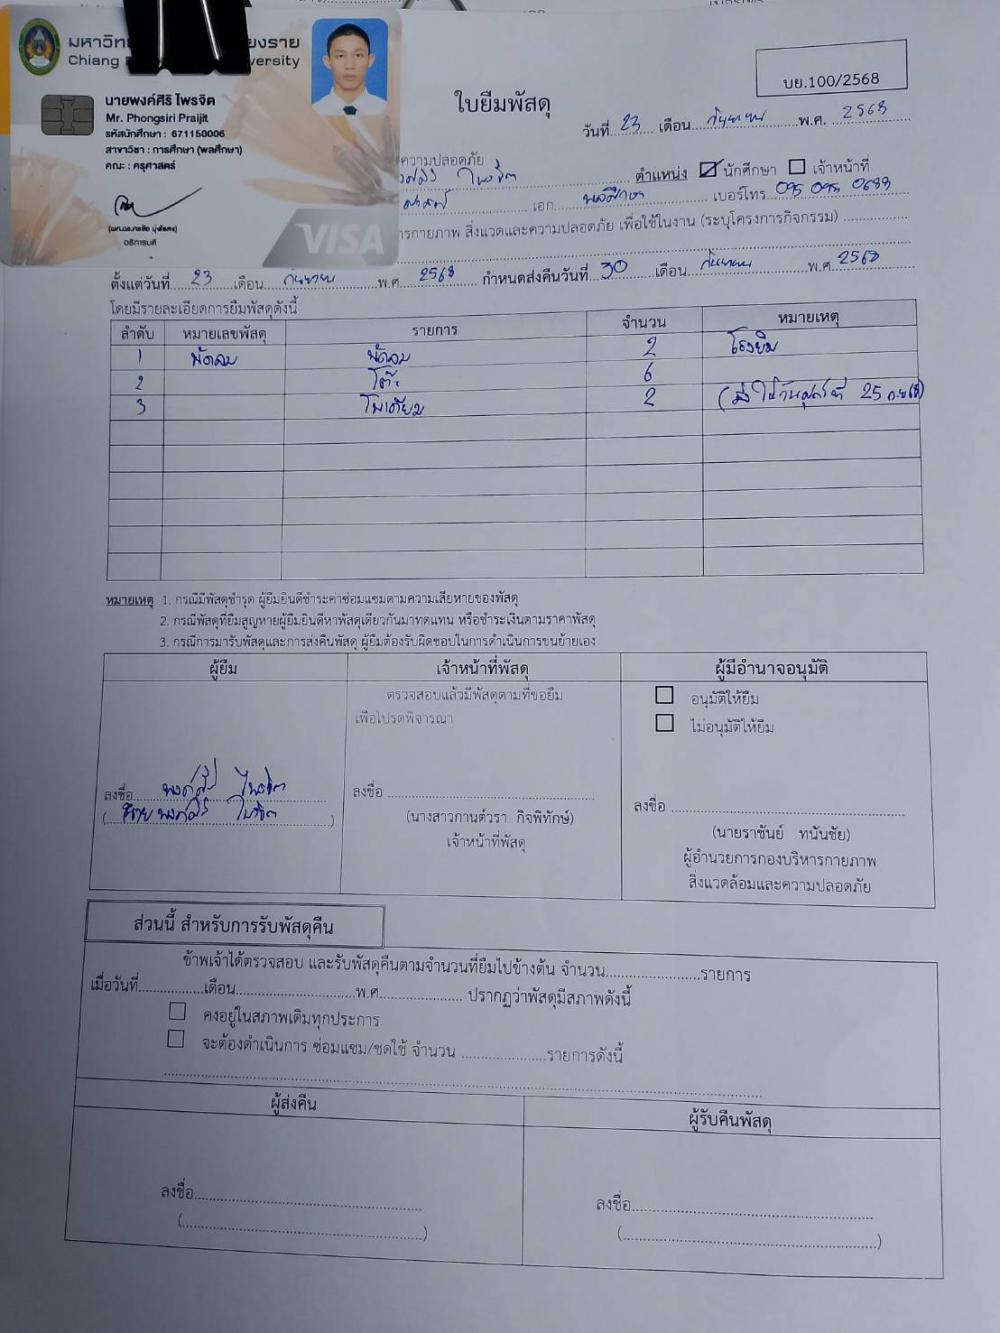 มหาวิท ยงราย
Chiang versity
นายพงค์ศิริ ไพรจิต
Mr. Phongsiri Praijit
รหัสนักศึกษา : 671150006
สาขาวิชา : การศึกษา (พลศึกษา)
คณะ : ครุศาสตร์
อธิการบดี
VISA
บย.100/2568
ใบยืมพัสดุ
วันที่ 23 เดือน กันยายน พ.ศ. 2568
ความปลอดภัย
ไพรจิต ตำแหน่ง ☑ นักศึกษา ☐ เจ้าหน้าที่
ศาสตร์ เอก พลศึกษา เบอร์โทร
ารกายภาพ สิ่งแวดและความปลอดภัย เพื่อใช้ในงาน (ระบุโครงการกิจกรรม)
ตั้งแต่วันที่ 23 เดือน กันยายน พ.ศ. 2568 กำหนดส่งคืนวันที่ 30 เดือน กันยายน พ.ศ. 2568
โดยมีรายละเอียดการยืมพัสดุดังนี้
ลำดับ หมายเลขพัสดุ รายการ จำนวน หมายเหตุ
1 พัดลม พัดลม 2 โรงยิม
2 โต๊ะ 6
3 โพเดียม 2 25
หมายเหตุ 1. กรณีมีพัสดุชำรุด ผู้ยืมยินดีชำระค่าซ่อมแซมตามความเสียหายของพัสดุ
2. กรณีพัสดุที่ยืมสูญหายผู้ยืมยินดีหาพัสดุเดียวกันมาทดแทน หรือชำระเงินตามราคาพัสดุ
3. กรณีการมารับพัสดุและการส่งคืนพัสดุ ผู้ยืมต้องรับผิดชอบในการดำเนินการขนย้ายเอง
ผู้ยืม เจ้าหน้าที่พัสดุ ผู้มีอำนาจอนุมัติ
ตรวจสอบแล้วมีพัสดุตามที่ขอยืม
เพื่อโปรดพิจารณา
☐ อนุมัติให้ยืม
☐ ไม่อนุมัติให้ยืม
ลงชื่อ พงค์ศิริ ไพรจิต
(นายพงค์ศิริ ไพรจิต)
ลงชื่อ
(นางสาวกานต์วรา กิจพิทักษ์)
เจ้าหน้าที่พัสดุ
ลงชื่อ
(นายราชันย์ ทนันชัย)
ผู้อำนวยการกองบริหารกายภาพ
สิ่งแวดล้อมและความปลอดภัย
ส่วนนี้ สำหรับการรับพัสดุคืน
ข้าพเจ้าได้ตรวจสอบ และรับพัสดุคืนตามจำนวนที่ยืมไปข้างต้น จำนวน รายการ
เมื่อวันที่ เดือน พ.ศ. ปรากฏว่าพัสดุมีสภาพดังนี้
☐ คงอยู่ในสภาพเดิมทุกประการ
☐ จะต้องดำเนินการ ซ่อมแซม/ชดใช้ จำนวน รายการดังนี้
ผู้ส่งคืน ผู้รับคืนพัสดุ
ลงชื่อ
(....)
ลงชื่อ
(....)